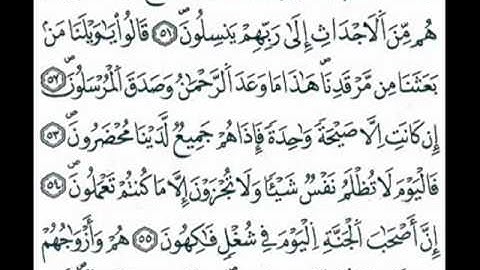 هُم مِّنَ ٱلْأَجْدَاثِ إِلَىٰ رَبِّهِمْ يَنسِلُونَ ۝٥١ قَالُوا۟ يَٰوَيْلَنَا مَنۢ
بَعَثَنَا مِن مَّرْقَدِنَا ۜ هَٰذَا مَا وَعَدَ ٱلرَّحْمَٰنُ وَصَدَقَ ٱلْمُرْسَلُونَ ۝٥٢
إِن كَانَتْ إِلَّا صَيْحَةً وَٰحِدَةً فَإِذَا هُمْ جَمِيعٌ لَّدَيْنَا مُحْضَرُونَ ۝٥٣
فَٱلْيَوْمَ لَا تُظْلَمُ نَفْسٌ شَيْـًٔا وَلَا تُجْزَوْنَ إِلَّا مَا كُنتُمْ تَعْمَلُونَ ۝٥٤
إِنَّ أَصْحَٰبَ ٱلْجَنَّةِ ٱلْيَوْمَ فِى شُغُلٍ فَٰكِهُونَ ۝٥٥ هُمْ وَأَزْوَٰجُهُمْ